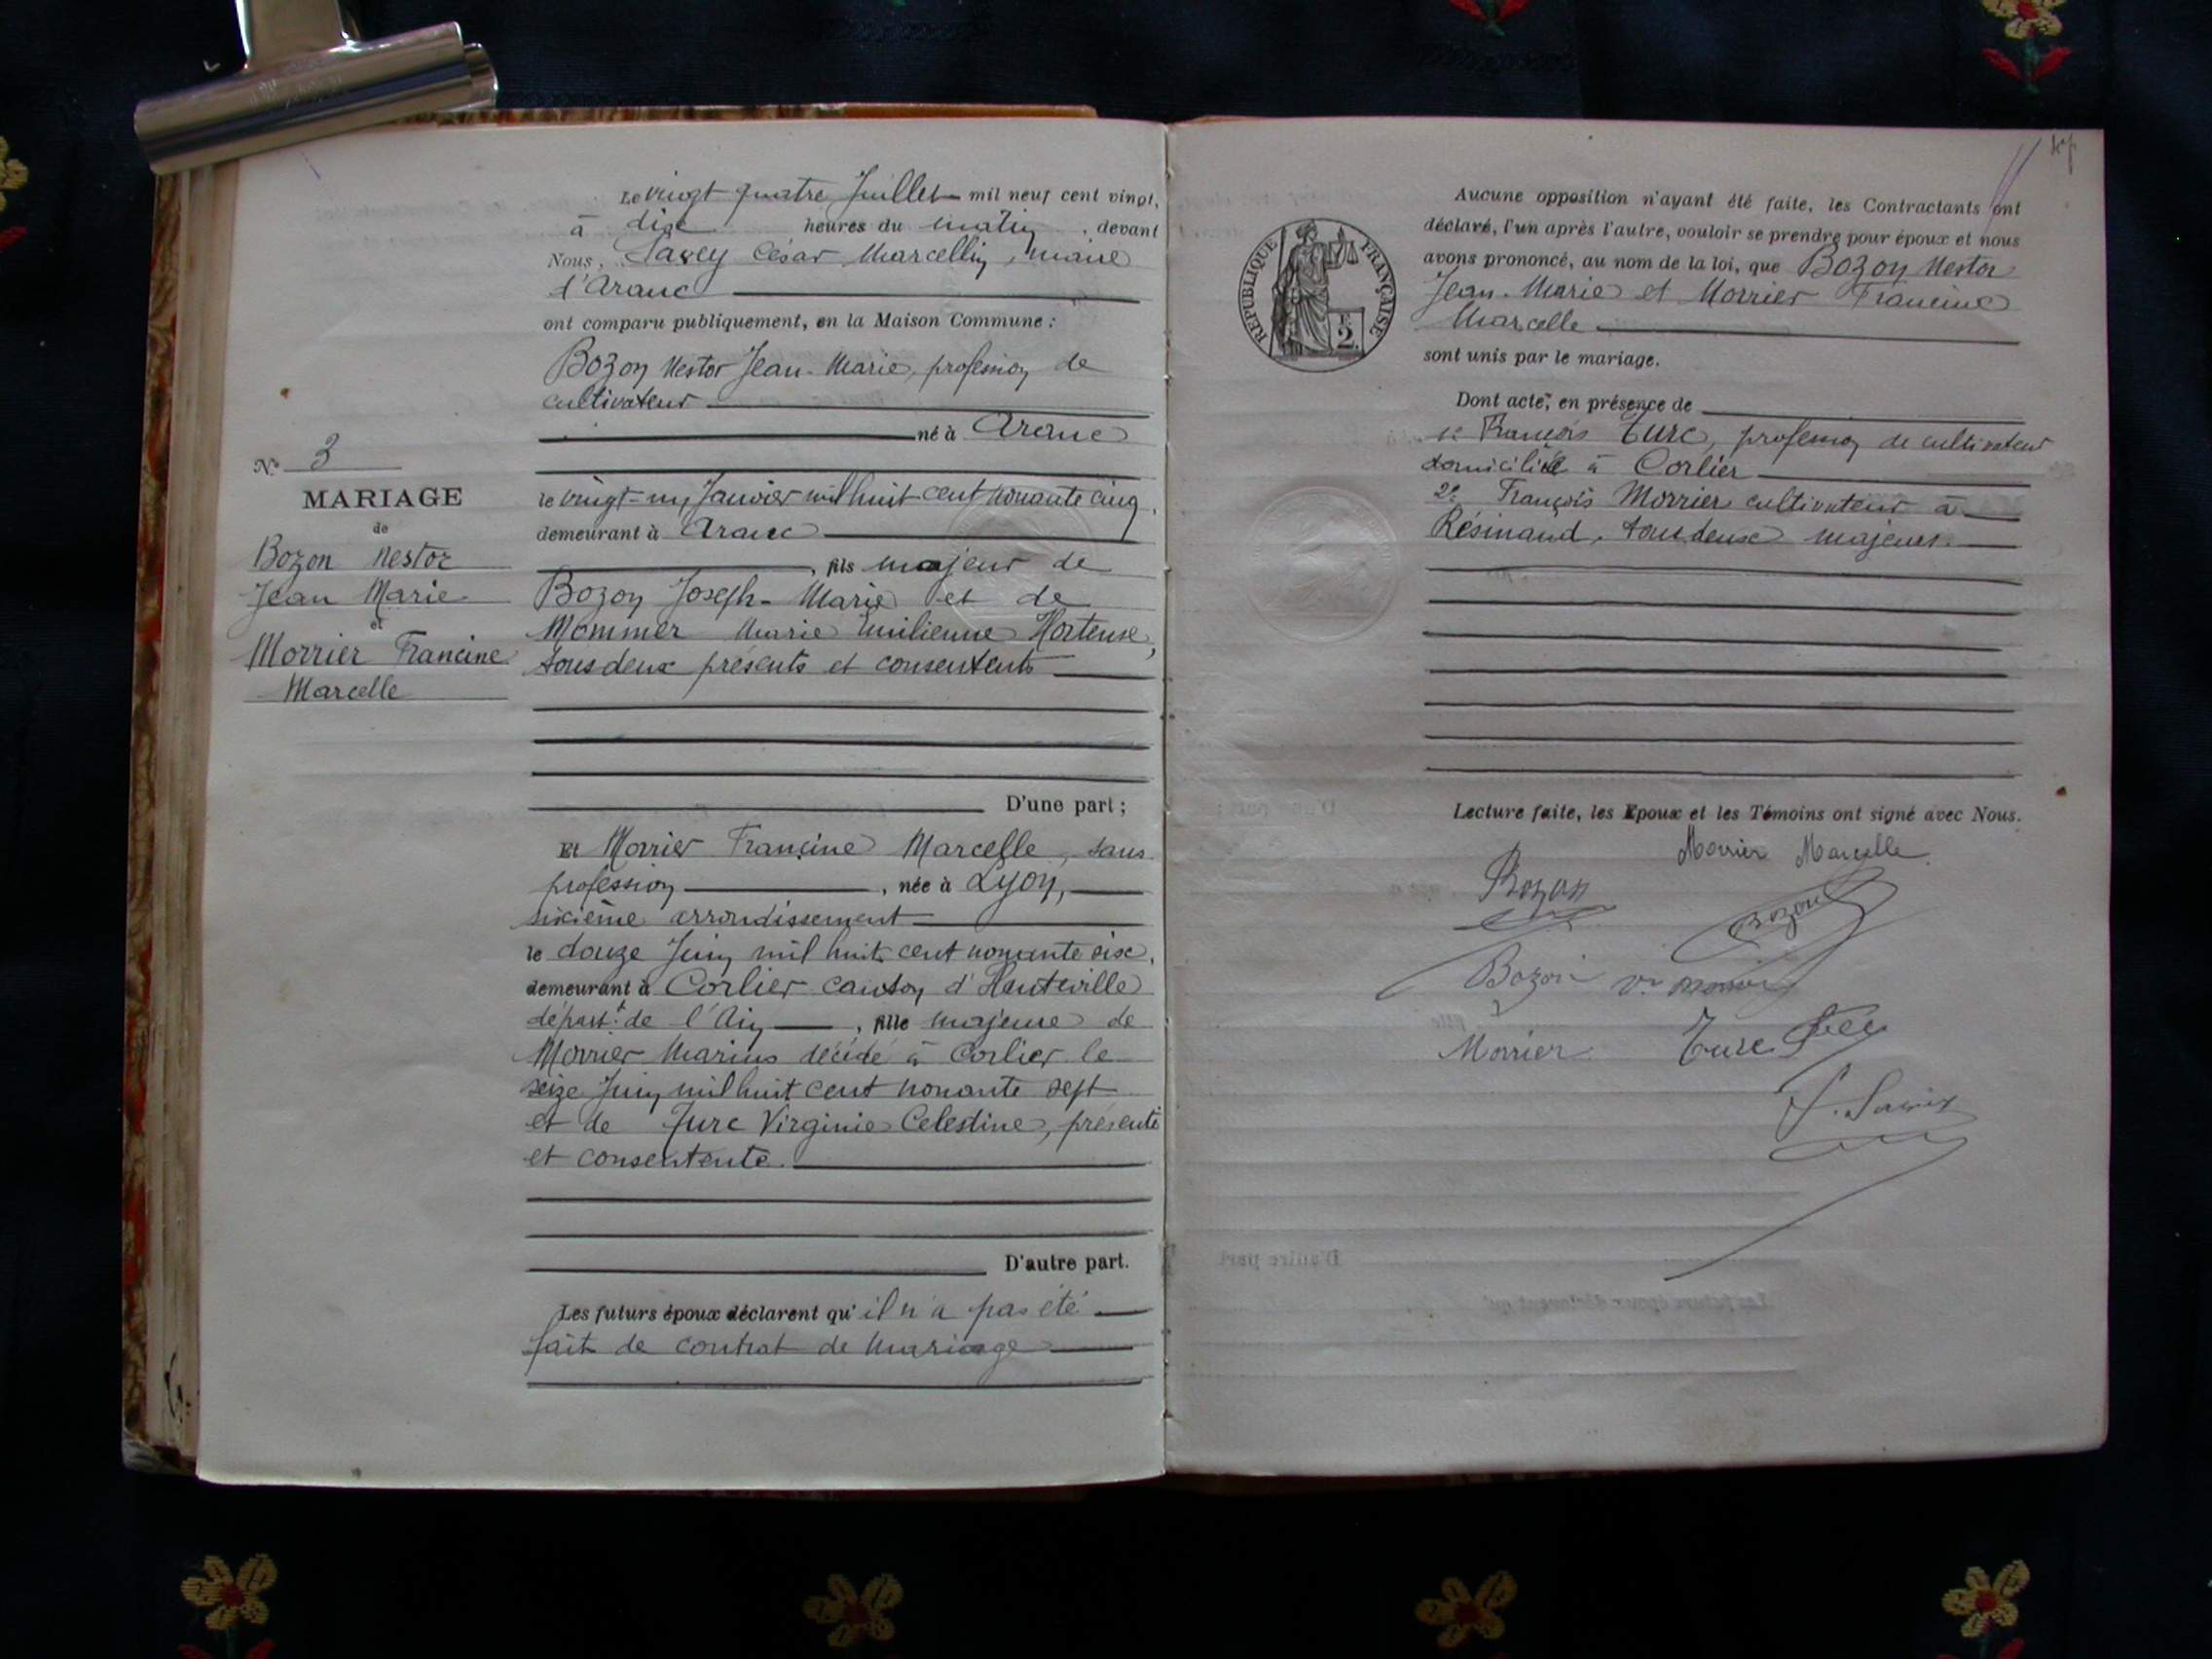 Le vingt quatre Juillet mil neuf cent vingt,
à dix heures du matin, devant
Nous, Savey César Marcellin, maire
d'Aranc
ont comparu publiquement, en la Maison Commune :
Bozon Nestor Jean-Marie, profession de
cultivateur
né à Aranc
le vingt-un Janvier mil huit cent nonante cinq,
demeurant à Aranc
, fils majeur de
Bozon Joseph-Marie et de
Mommer Marie Emilienne Hortense,
tous deux présents et consentents
D'une part ;
No 3
MARIAGE
de
Bozon Nestor
Jean Marie
et
Morrier Francine
Marcelle
Et Morrier Francine Marcelle, sans
profession, née à Lyon,
sixième arrondissement
le douze Juin mil huit cent nonante six,
demeurant à Corlier canton d'Hauteville
départt de l'Ain, fille majeure de
Morrier Marius décédé à Corlier le
seize Juin mil huit cent nonante sept
et de Turc Virginie Celestine, présente
et consentente.
D'autre part.
Les futurs époux déclarent qu'il n'a pas été
fait de contrat de mariage
Aucune opposition n'ayant été faite, les Contractants ont
déclaré, l'un après l'autre, vouloir se prendre pour époux et nous
avons prononcé, au nom de la loi, que Bozon Nestor
Jean-Marie et Morrier Francine
Marcelle
sont unis par le mariage.
Dont acte, en présence de
1º François Turc, profession de cultivateur
domicilié à Corlier
2º François Morrier cultivateur à
Résinand, tous deux majeurs.
RÉPUBLIQUE FRANÇAISE
2
Lecture faite, les Epoux et les Témoins ont signé avec Nous.
Morrier Marcelle
Bozon
Bozon
Bozon Vve Morrier
Morrier Turc